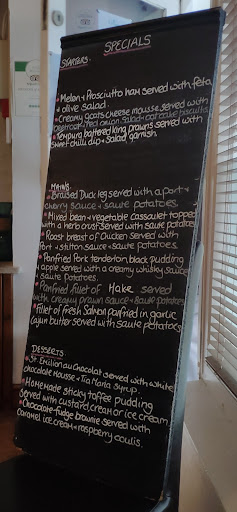 SPECIALS
STARTERS:
• Melon & Prosciutto ham served with feta
& olive salad.
• Creamy goats cheese mousse served with
beetroot & red onion salad & oatcake biscuits
• Tempura battered king prawns served with
sweet chilli dip & salad garnish.
MAINS
• Braised Duck leg served with a port &
cherry sauce & sauté potatoes.
• Mixed bean & vegetable cassaulet topped
with a herb crust served with sauté potatoes
• Roast breast of Chicken served with
Port & stilton sauce & sauté potatoes.
• Panfried Pork tenderloin, black pudding
& apple served with a creamy whisky sauce
& sauté potatoes.
• Panfried fillet of Hake served
with creamy prawn sauce & sauté potatoes
• Fillet of fresh Salmon panfried in garlic
cajun butter served with sauté potatoes
DESSERTS
• St Emilion au Chocolat served with white
chocolate mousse & Tia Maria Syrup.
• Homemade sticky toffee pudding
Served with custard, cream or ice cream
• Chocolate fudge brownie served with
caramel ice cream & raspberry coulis.